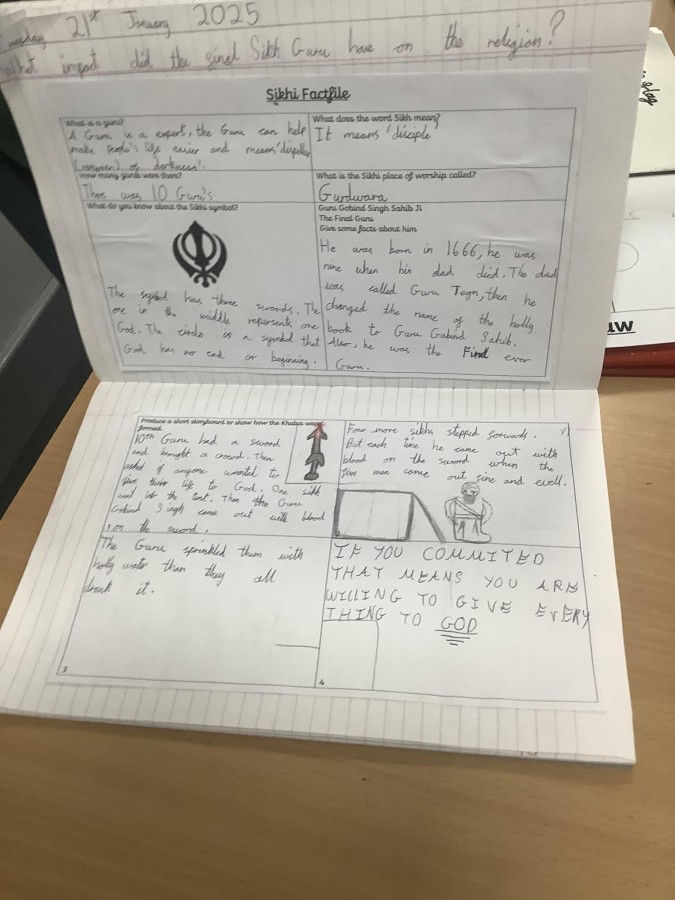 Tuesday 21st January 2025
What impact did the final Sikh Guru have on the religion?
Sikhi Factfile
What is a guru?
A Guru is a expert, the Guru can help
make people's life easier and means 'dispeller
of darkness'.
What does the word Sikh mean?
It means 'disciple'
How many gurus were there?
There was 10 Guru's
What is the Sikhi place of worship called?
Gurdwara
What do you know about the Sikhi symbol?
The symbol has three swords. The
one in the middle represents one
God. The circle is a symbol that
God has no end or beginning.
Guru Gobind Singh Sahib Ji
The Final Guru
Give some facts about him
He was born in 1666, he was
nine when his dad died. The dad
was called Guru Tegn, then he
changed the name of the holly
book to Guru Gabind Sahib.
Also, he was the Final ever
Guru.
Produce a short storyboard to show how the Khalsa were
formed.
10th Guru had a sword
and brought a crowd. Then
asked if anyone wanted to
give their life to God. One sikh
and left the tent. Then the Guru
Gobind Singh came out with blood
on the sword.
Four more sikhs stepped forwards.
But each time he came out with
blood on the sword when the
five men came out fine and well.
2
The Guru sprinkled them with
holly water than they all
drank it.
3
IF YOU COMMITED
THAT MEANS YOU ARE
WILLING TO GIVE EVERY
THING TO GOD
4